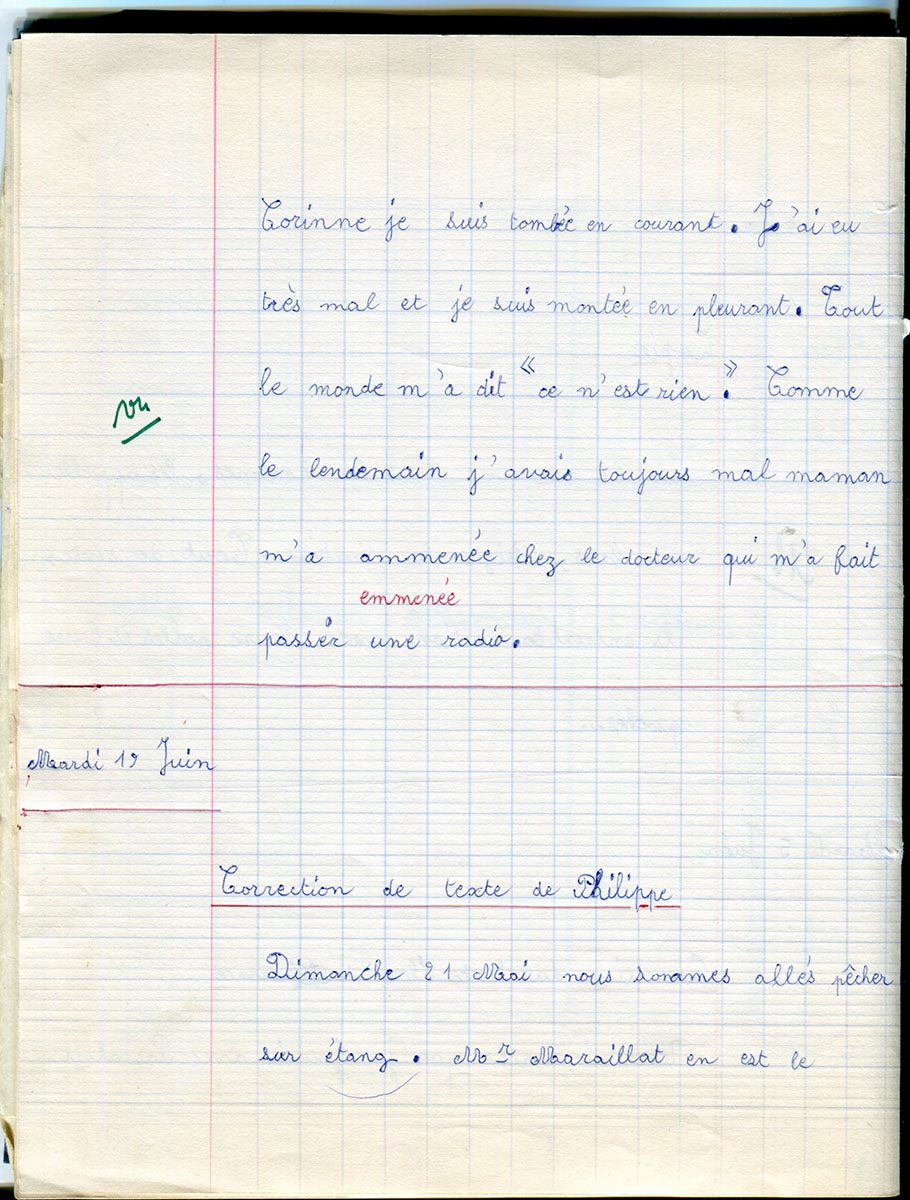 Corinne je suis tombée en courant. J'ai eu
très mal et je suis montée en pleurant. Tout
le monde m'a dit « ce n'est rien. » Comme
vu
le lendemain j'avais toujours mal maman
m'a ammenée chez le docteur qui m'a fait
emmenée
passer une radio.
Mardi 19 Juin
Correction de texte de Philippe
Dimanche 21 Mai nous sommes allés pêcher
sur étang. Mr Maraillat en est le